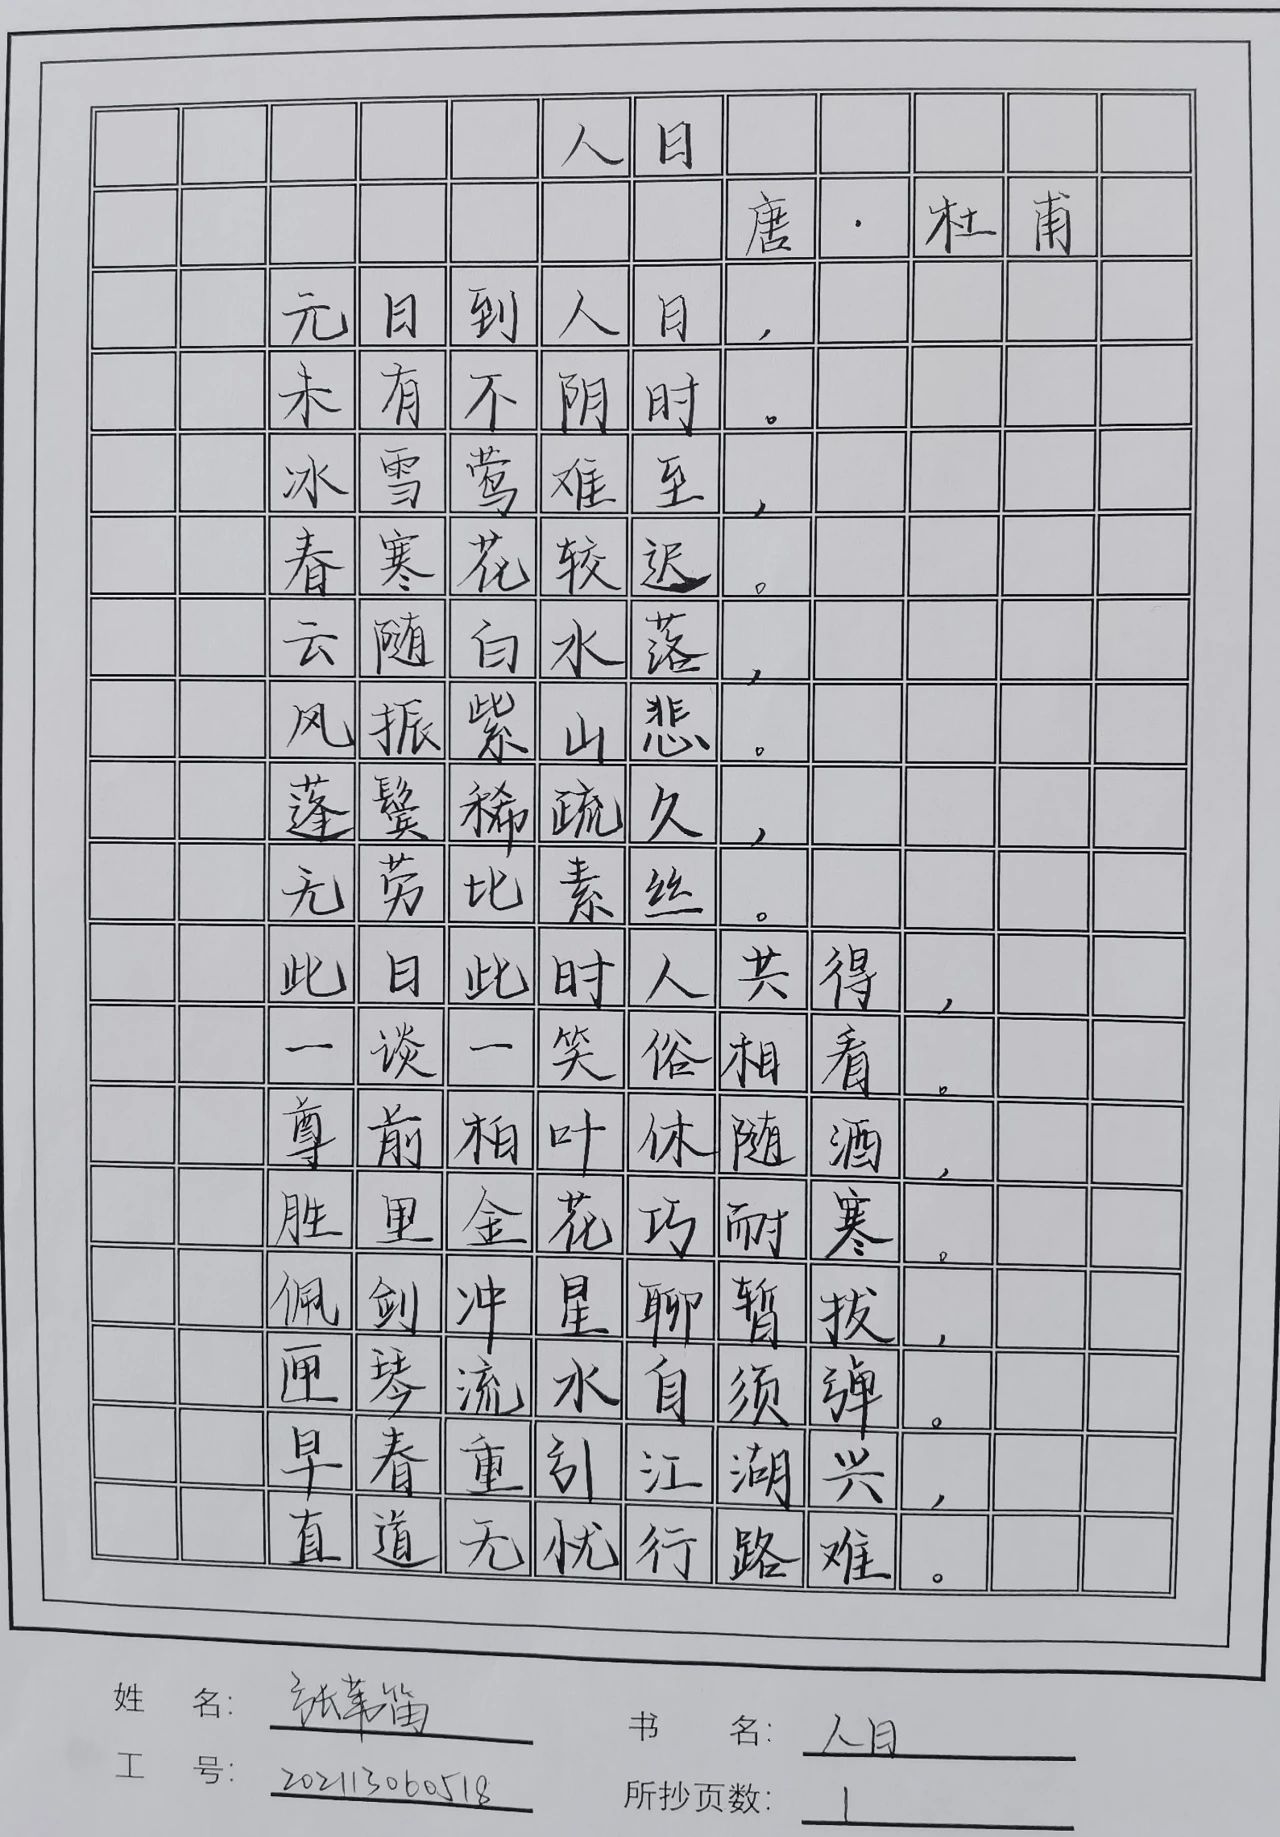 人日
唐·杜甫
元日到人日，
未有不阴时。
冰雪莺难至，
春寒花较迟。
云随白水落，
风振紫山悲。
蓬鬓稀疏久，
无劳比素丝。
此日此时人共得，
一谈一笑俗相看。
尊前柏叶休随酒，
胜里金花巧耐寒。
佩剑冲星聊暂拔，
匣琴流水自须弹。
早春重引江湖兴，
直道无忧行路难。
姓名：张苇笛
书名：人日
工号：202113060518
所抄页数：1